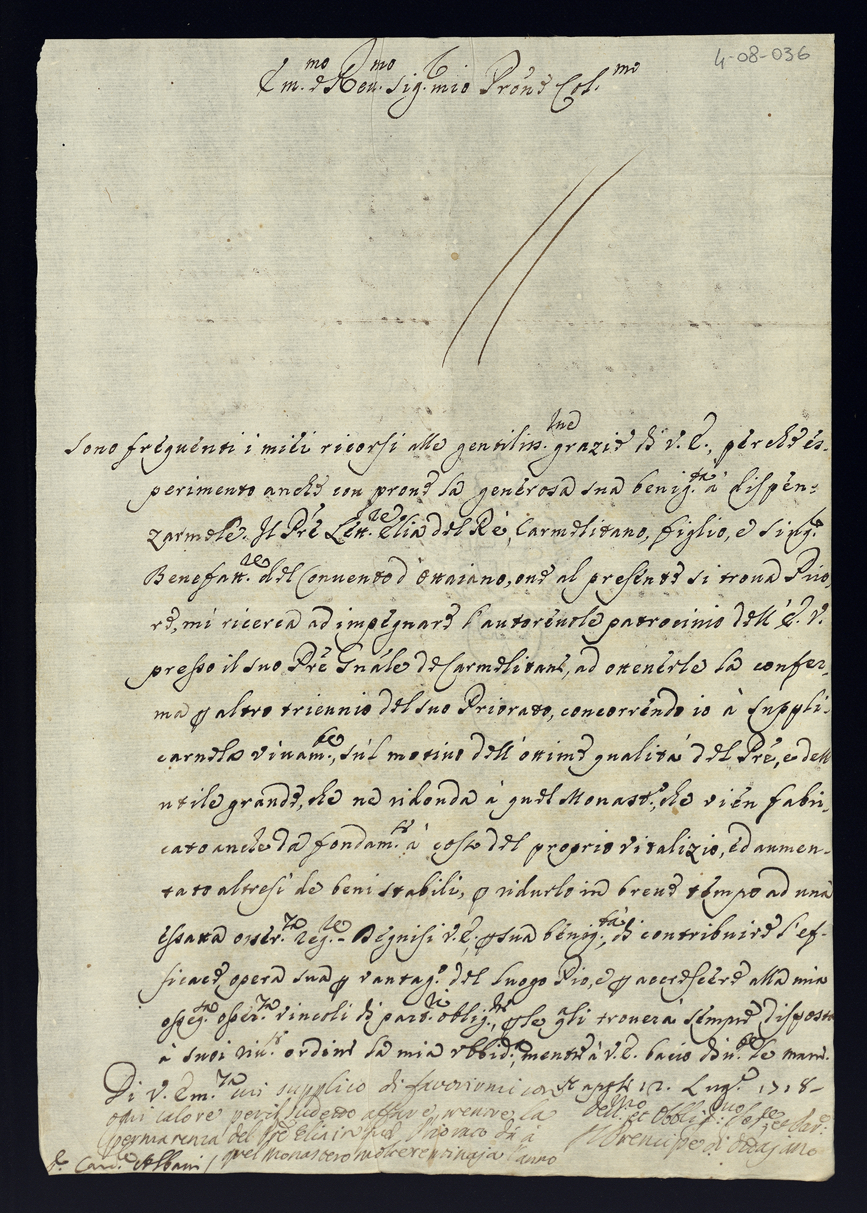 4-08-036
Em.mo e Reu.mo Sig. mio Pron. Col.mo
Sono frequenti i miei ricorsi alle gentiliss.me grazie di V. E., perche es-
perimento anche con prove la generosa sua benig.tà à dispen-
zarmele. Il Pre Lett.re Elia del Rè, Carmelitano, figlio, e sing.e
Benefatt.re del Convento d'Ottaiano, oue al presente si troua Prio
re, mi ricerca ad impegnare l'autoreuole patrocinio dell'E. V.
presso il suo Pre Gnãle de Carmelitani, ad ottenerle la confer-
ma p altro triennio del suo Priorato, concorrendo io à suppli-
carnela viuam.te, sul motiuo dell'ottime qualità del Pre, e dell
utile grande, che ne ridonda à quel Monast.o, che vien fabri-
cato anche da fondam.ti à costo del proprio vitalizio, ed aumen-
tato altresi de beni stabili, p ridurlo in breue tempo ad una
essatta osser.za reg.re Degnisi V. E., p sua benig.tà, di contribuire l'ef-
ficace opera sua p vantag.o del luogo Pio, e p accrescere alla mia
osseq.ta osser.za vincoli di part.ri oblig.ni, p le gli trouerà sempre disposta
à suoi riu.ti ordini la mia obbid.a, mentre à V. E. bacio diu.te le mani.
Di V. Em.za cui supplico di favorirmi con Napoli 12. Lug.o 1718-
ogni calore per il sudetto affare, mentre la Deu.mo et Obblig.mo
permanenza del Pre Elia in quel Priorato dà à Il Prencipe di Ottajano
quel Monastero l'anno
S.r Card.e Albani